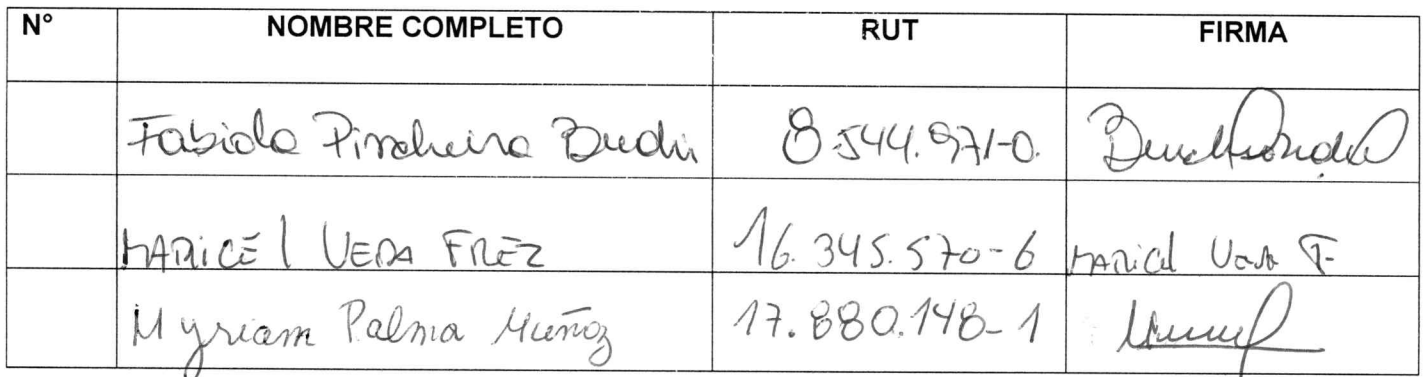 N° NOMBRE COMPLETO RUT FIRMA
Fabiola Pincheira 8.544.971-0.
MARICEL VERA FREZ 16.345.570-6 MARICEL Vera F.
Myriam Palma Muñoz 17.880.148-1